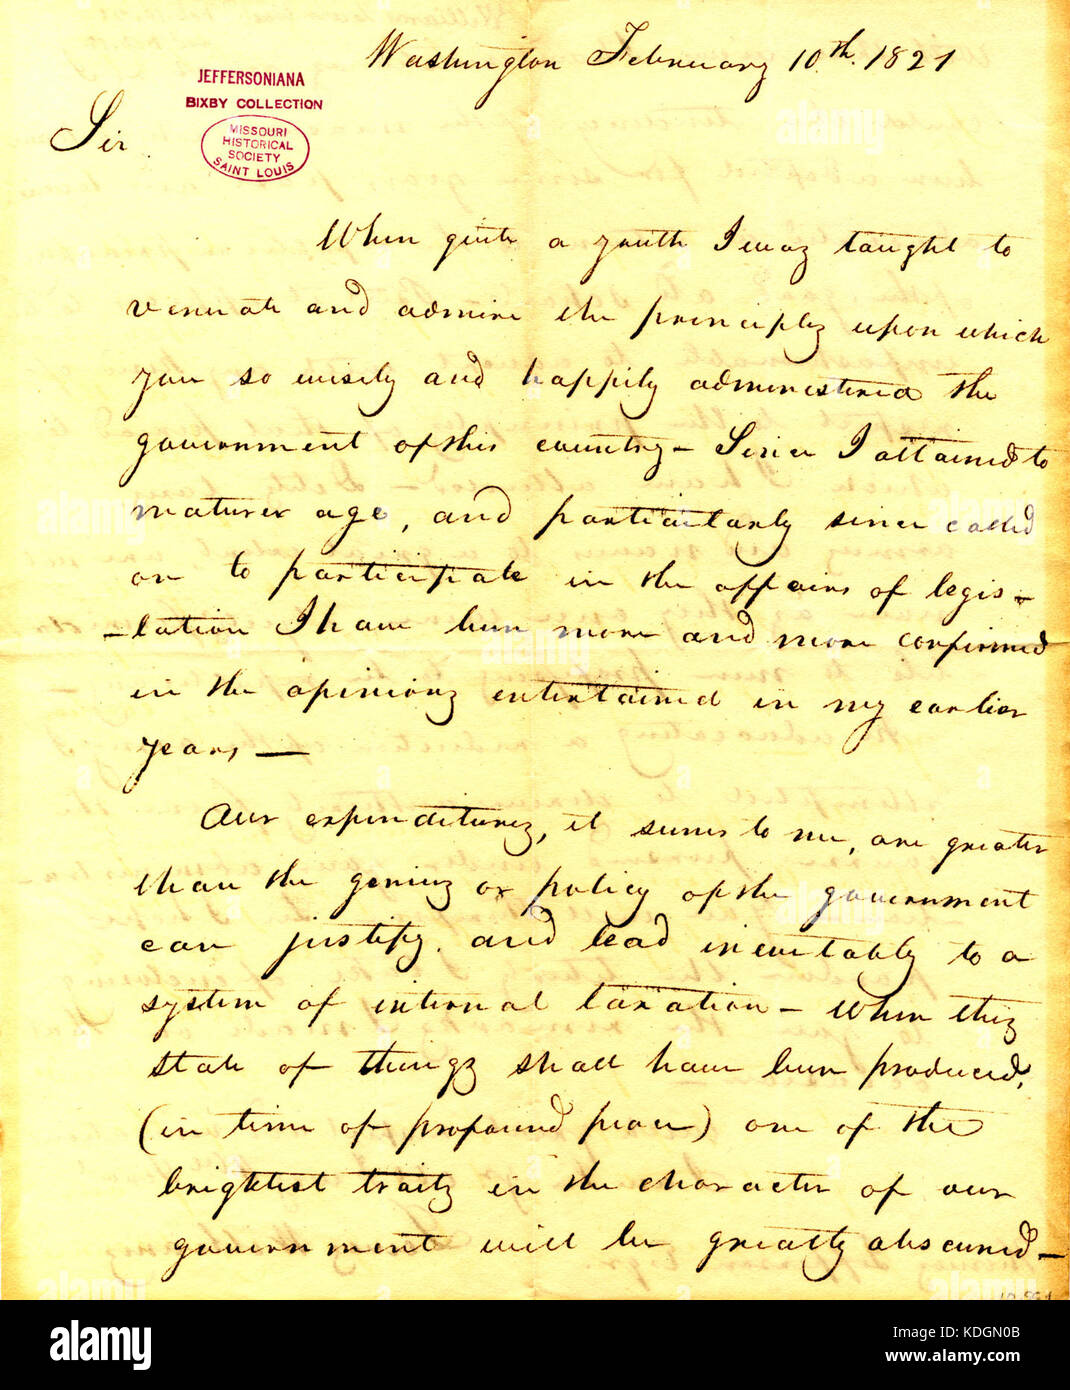 Washington February 10th. 1821
JEFFERSONIANA
BIXBY COLLECTION
MISSOURI
HISTORICAL
SOCIETY
SAINT LOUIS
Sir
When quite a youth I was taught to
venerate and admire the principles upon which
you so wisely and happily administered the
government of this country – Since I attained to
maturer age, and particularly since called
on to participate in the affairs of legis-
-lation I have been more and more confirmed
in the opinions entertained in my earlier
years, —
Our expenditures, it seems to me, are greater
than the genius or policy of the government
can justify. and lead inevitably to a
system of internal taxation – When this
state of things shall have been produced,
(in time of profound peace) one of the
brightest traits in the character of our
government will be greatly obscured –
alamy
Image ID: KDGN0B
www.alamy.com